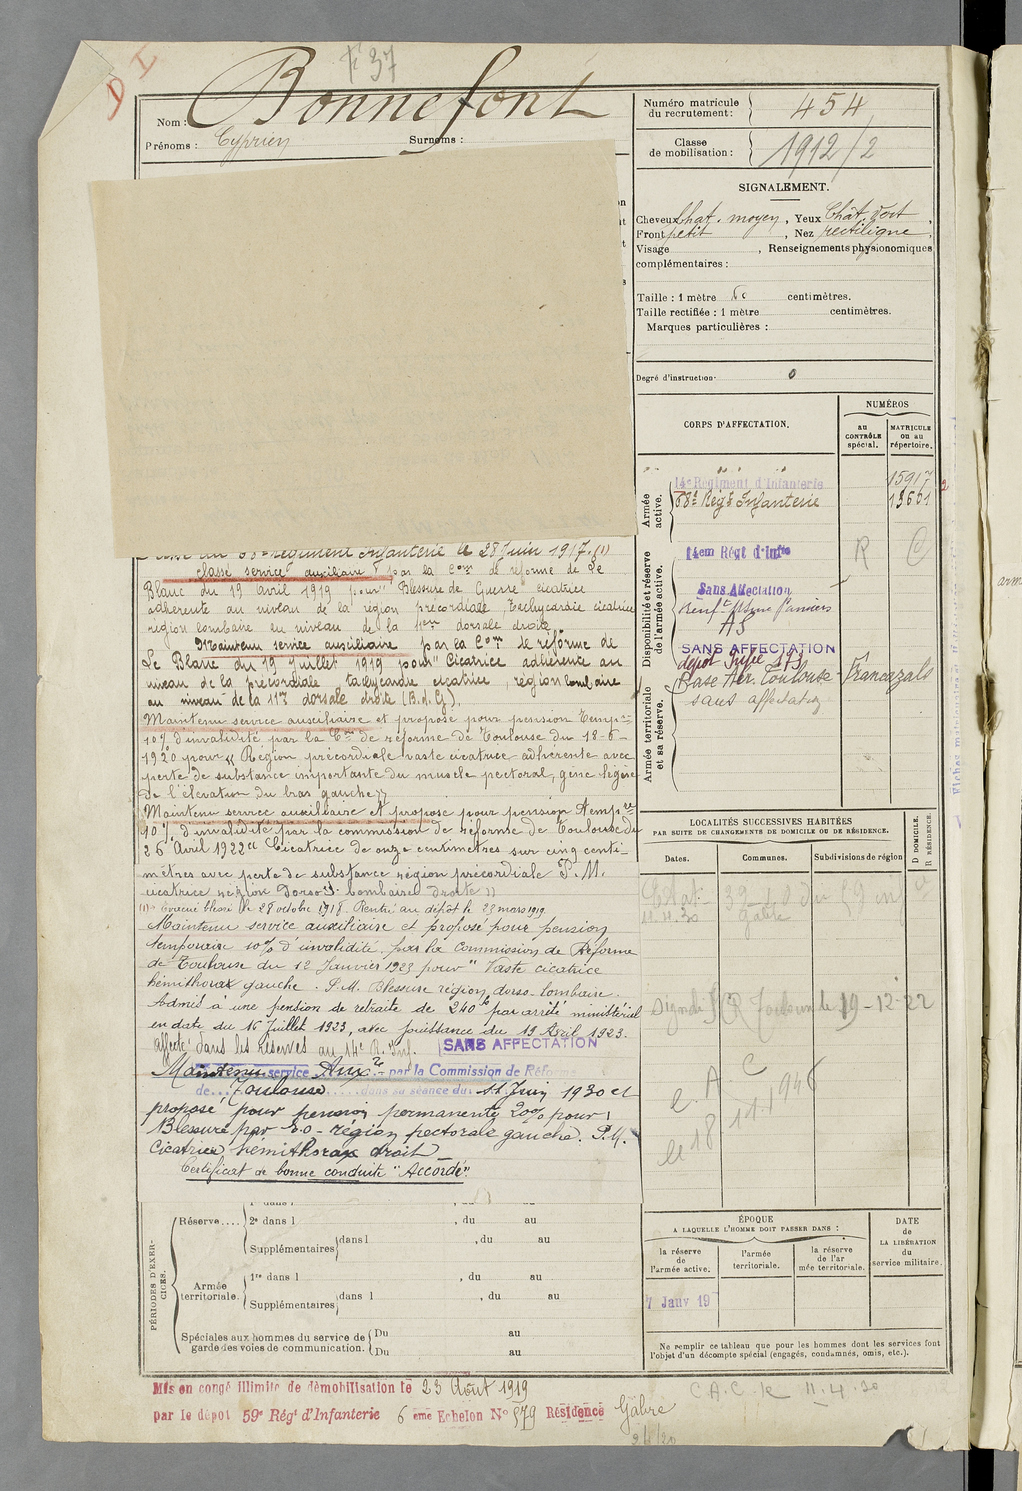 D I
F 37
Nom : Bonnefont
Prénoms : Cyprien Surnoms :
Numéro matricule du recrutement : 454
Classe de mobilisation : 1912/2
SIGNALEMENT.
Cheveux Chat. moyen, Yeux Chât. vert,
Front petit, Nez rectiligne,
Visage , Renseignements physionomiques
complémentaires :
Taille : 1 mètre centimètres.
Taille rectifiée : 1 mètre centimètres.
Marques particulières :
Degré d'instruction 0
CORPS D'AFFECTATION.
NUMÉROS
au CONTRÔLE spécial.
MATRICULE ou au répertoire.
Armée active.
14e Régiment d'Infanterie 15917
68e Régt Infanterie
Disponibilité et réserve de l'armée active.
14em Régt d'Infie R
Sans Affectation
SANS AFFECTATION
Armée territoriale et sa réserve.
Base Aér. Toulouse - Francazals
sans affectation
68e régiment Infanterie le 28 Juin 1917. (1)
classé service auxiliaire par la Con de réforme de Le
Blanc du 19 avril 1919 pour "Blessure de Guerre cicatrice
adhérente au niveau de la région précordiale, tachycardie cicatrice
région lombaire au niveau de la 11me dorsale droite
Maintenu service auxiliaire par la Con de réforme de
Le Blanc du 19 Juillet 1919 pour "Cicatrice adhérente au
niveau de la précordiale tachycardie cicatrice, région lombaire
au niveau de la 11me dorsale droite (B.d.G).
Maintenu service auxiliaire et proposé pour pension Tempre
10% d'invalidité par la Con de réforme de Toulouse du 18-6-
1920 pour "Région précordiale vaste cicatrice adhérente avec
perte de substance importante du muscle pectoral, gêne légère
de l'élévation du bras gauche"
Maintenu service auxiliaire et proposé pour pension tempre
10% d'invalidité par la commission de réforme de Toulouse du
26 Avril 1922 "Cicatrice de onze centimètres sur cinq centi-
mètres avec perte de substance région précordiale P.M.
cicatrice région Dorso-lombaire droite"
(1) Evacué blessé le 28 octobre 1918. Rentré au dépôt le 23 mars 1919
Maintenu service auxiliaire et proposé pour pension
temporaire 10% d'invalidité par la Commission de Réforme
de Toulouse du 12 Janvier 1923 pour "Vaste cicatrice
hémithorax gauche. P.M. Blessure région dorso-lombaire.
Admis à une pension de retraite de 240f par arrêté ministériel
en date du 16 Juillet 1923, avec jouissance du 19 Avril 1923.
affecté dans les réserves au 14e R. Inf. SANS AFFECTATION
Maintenu service Auxre par la Commission de Réforme
de Toulouse dans sa séance du 11 Juin 1930 et
proposé pour pension permanente 20% pour
Blessure par E.O - région pectorale gauche. P.M.
Cicatrice hémithorax droit
Certificat de bonne conduite "Accordé"
LOCALITÉS SUCCESSIVES HABITÉES
PAR SUITE DE CHANGEMENTS DE DOMICILE OU DE RÉSIDENCE.
Dates. Communes. Subdivisions de région
D DOMICILE.
R RÉSIDENCE.
Gabre
Toulouse le 19-12-22
PÉRIODES D'EXERCICES.
Réserve....
2e dans l , du au
Supplémentaires dans l , du au
Armée territoriale.
1re dans l , du au
Supplémentaires dans l , du au
Spéciales aux hommes du service de garde des voies de communication.
Du au
Du au
ÉPOQUE
A LAQUELLE L'HOMME DOIT PASSER DANS :
la réserve de l'armée active.
l'armée territoriale.
la réserve de l'armée territoriale.
DATE de LA LIBÉRATION du service militaire.
7 Janv 19
Ne remplir ce tableau que pour les hommes dont les services font
l'objet d'un décompte spécial (engagés, condamnés, omis, etc.).
Mis en congé illimité de démobilisation le 23 Août 1919
par le dépôt 59e Régt d'Infanterie 6 eme Echelon No 579 Résidence Gabre
C.A.C. le 11.4.30